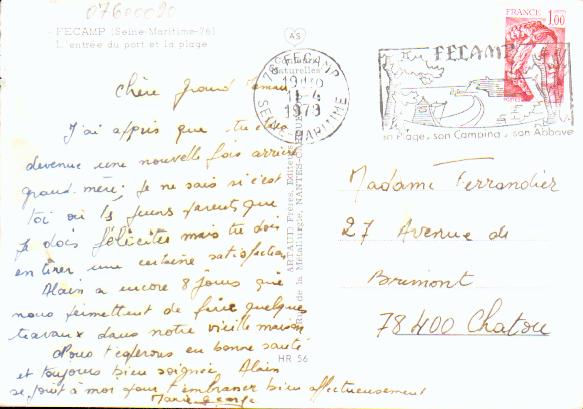 07600020
- FECAMP (Seine-Maritime-76)
L'entrée du port et la plage
AS
FRANCE
1,00
POSTES
76 FECAMP
11-4
1979
SEINE MARITIME
FECAMP
sa Plage, son Camping, son Abbaye
ARTAUD Frères, Editeurs
Rue de la Métallurgie, NANTES-CARQUEFOU
HR 56
Chère Grand Maman
J'ai appris que tu étais
devenue une nouvelle fois arrière
grand-mère; je ne sais si c'est
toi ou les jeunes parents que
je dois féliciter mais tu dois
en tirer une certaine satisfaction
Alain a encore 8 jours qui
nous permettent de faire quelques
travaux dans notre vieille maison
Nous t'espérons en bonne santé
et toujours bien soignée. Alain
se joint à moi pour t'embrasser bien affectueusement
Marie George
Madame Ferrandier
27 Avenue de
Brimont
78400 Chatou